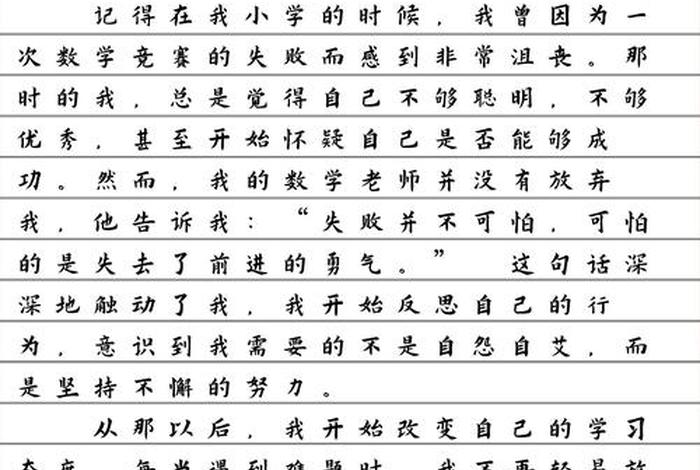 记得在我小学的时候，我曾因为一
次数学竞赛的失败而感到非常沮丧。那
时的我，总是觉得自己不够聪明，不够
优秀，甚至开始怀疑自己是否能够成
功。然而，我的数学老师并没有放弃
我，他告诉我：“失败并不可怕，可怕
的是失去了前进的勇气。” 这句话深
深地触动了我，我开始反思自己的行
为，意识到我需要的不是自怨自艾，而
是坚持不懈的努力。
从那以后，我开始改变自己的学习
态度，每当遇到难题时，我不再轻易放